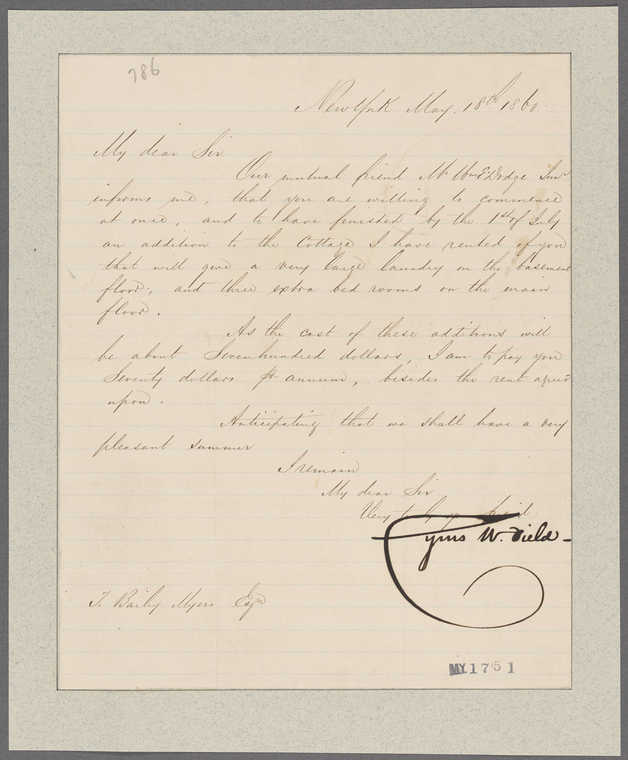 786
New York May. 18th 1860.
My dear Sir
Our mutual friend Mr. Wm E Dodge Junr
informs me, that you are willing to commence
at once, and to have finished by the 1st of July
an addition to the Cottage I have rented of you
that will give a very large laundry on the basement
floor, and three extra bed rooms on the main
floor.
As the cost of these additions will
be about Sevenhundred dollars, I am to pay you
Seventy dollars pr annum, besides the rent agreed
upon.
Anticipating that we shall have a very
pleasant summer
I remain
My dear Sir
Very truly yr friend
Cyrus W. Field
T. Baily Myers Esqr
MY 1751